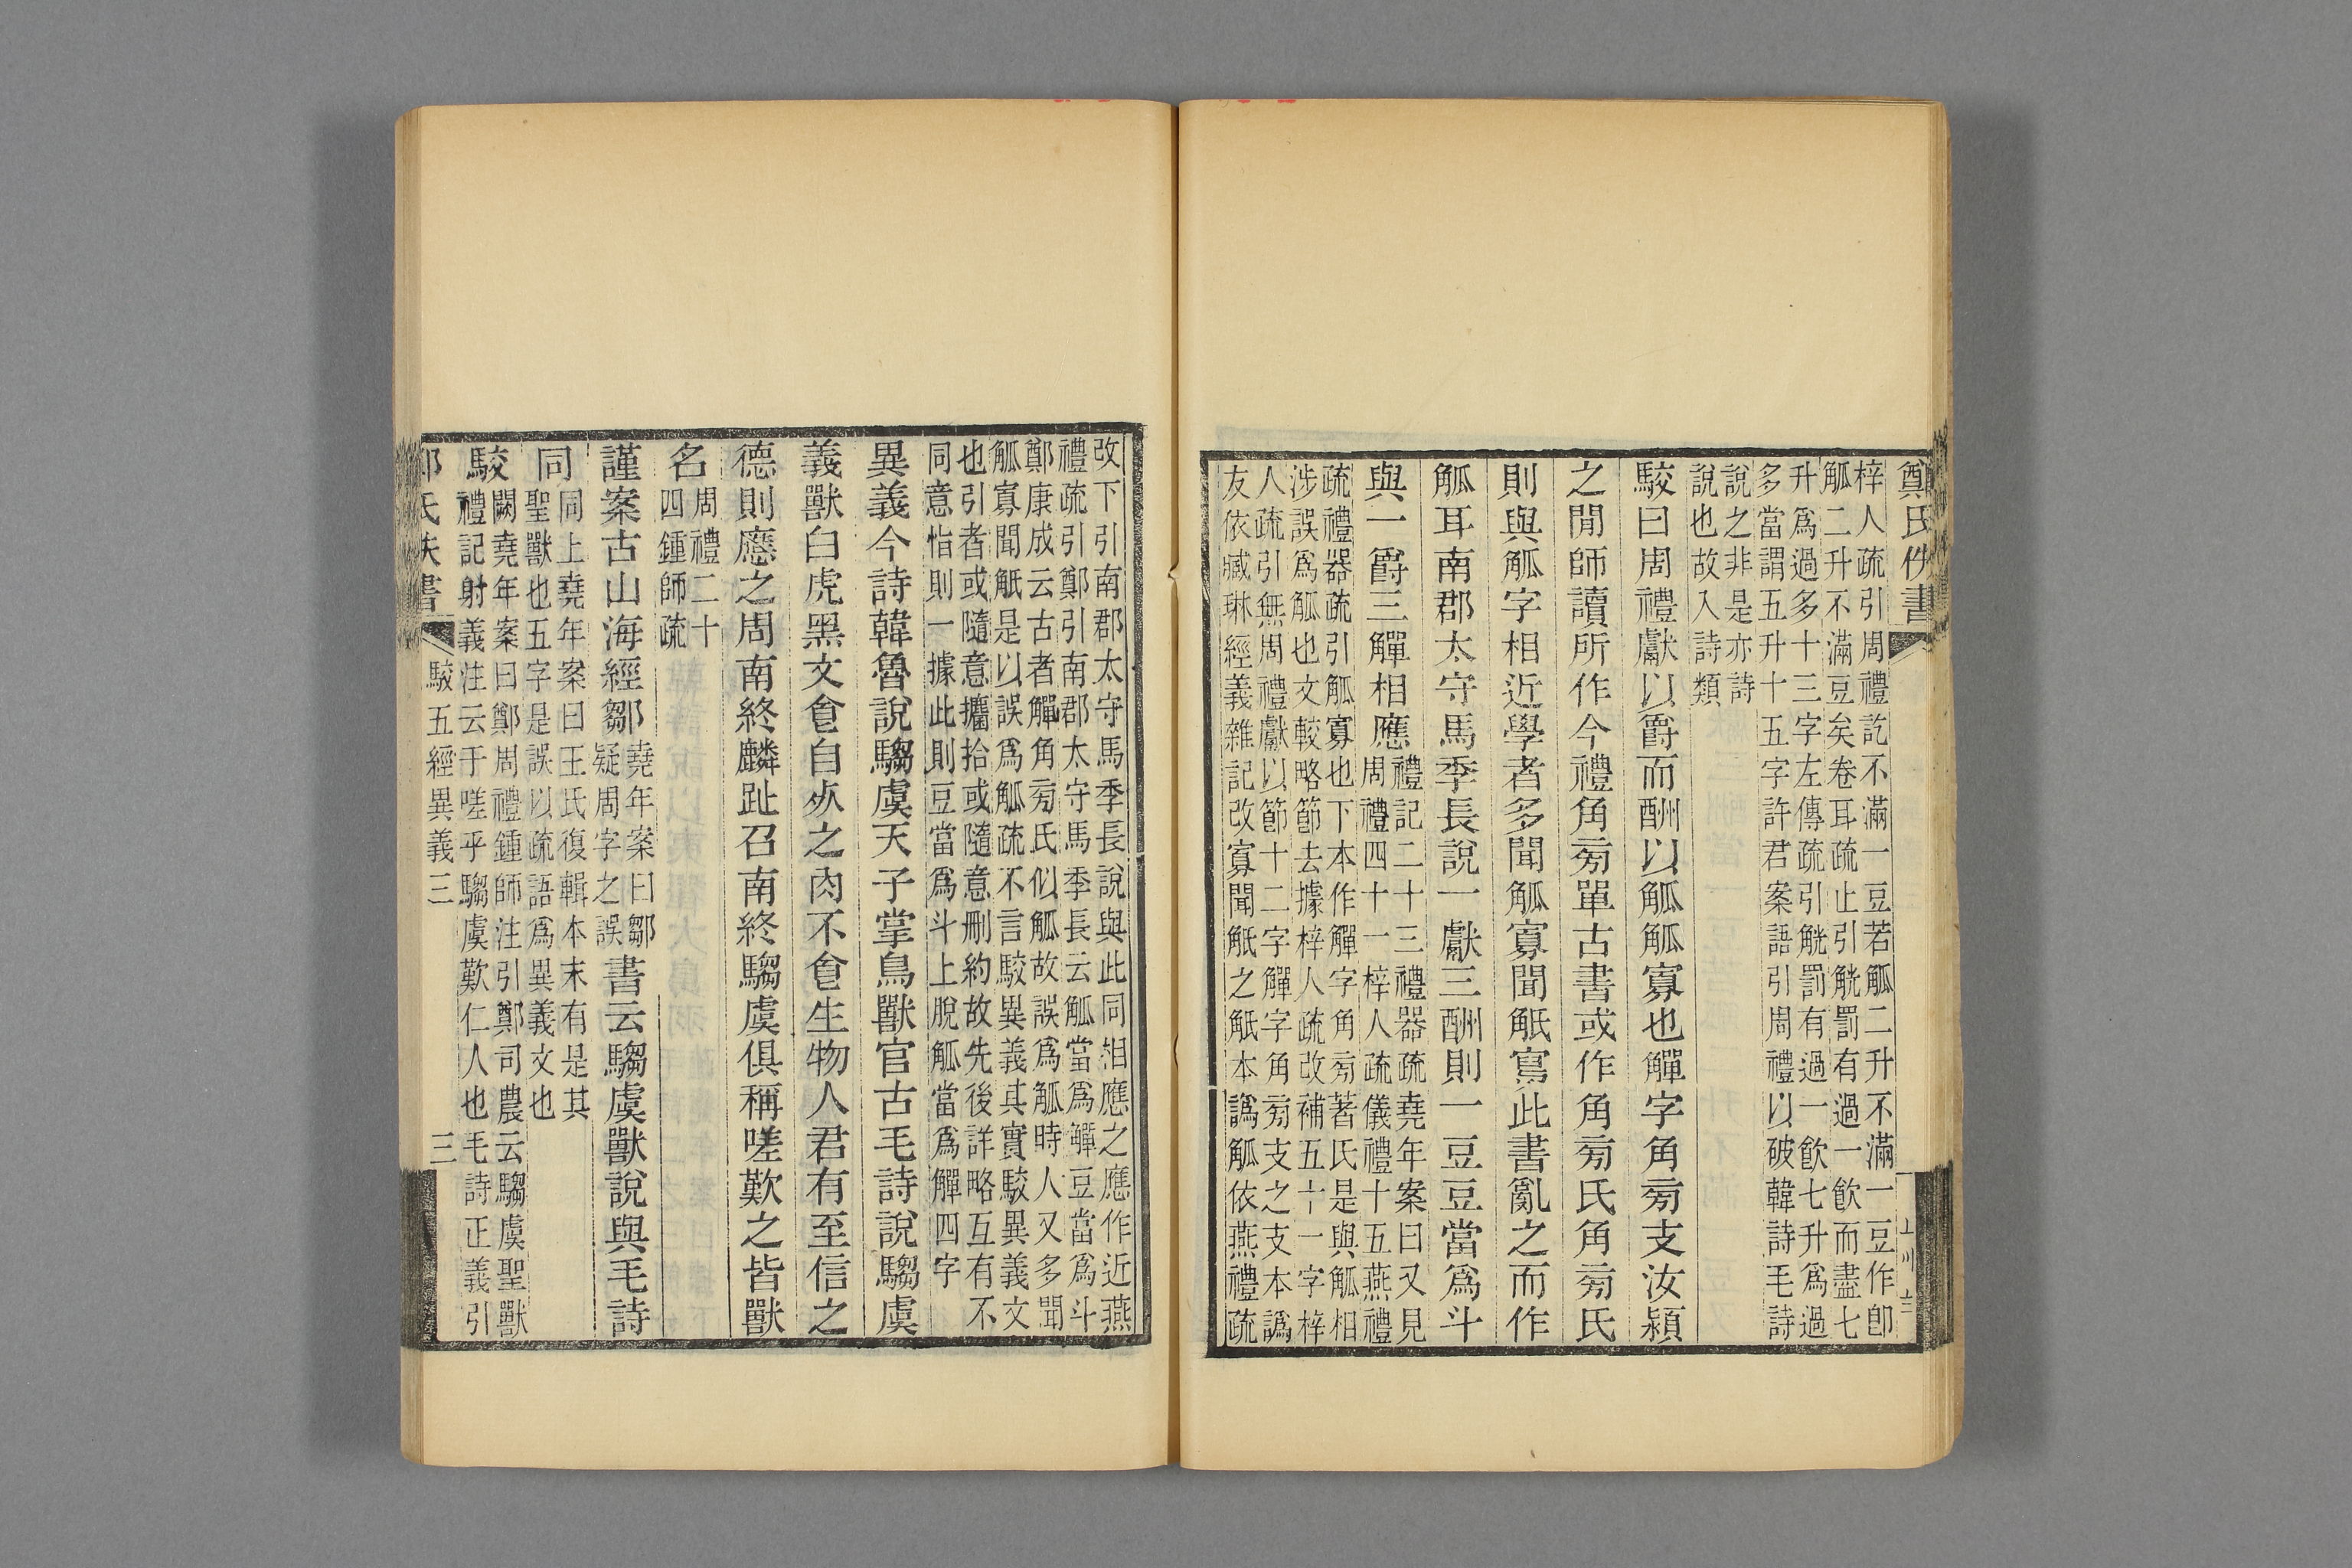 鄭氏佚書
梓人疏引周禮訖不滿一豆若觚二升不滿一豆作卽
觚二升不滿豆矣卷耳疏止引觥罰有過一飮而盡七
升爲過多十三字左傳疏引觥罰有過一飮七升爲過
多當謂五升十五字許君案語引周禮以破韓詩毛詩
說之非是亦詩
說也故入詩類
駮曰周禮獻以爵而酬以觚觚寡也觶字角㫄支汝潁
之閒師讀所作今禮角㫄單古書或作角㫄氏角㫄氏
則與觚字相近學者多聞觚寡聞觝寫此書亂之而作
觚耳南郡太守馬季長說一獻三酬則一豆豆當爲斗
與一爵三觶相應禮記二十三禮器疏堯年案曰又見
周禮四十一梓人疏儀禮十五燕禮
疏禮器疏引觚寡也下本作觶字角㫄著氏是與觚相
涉誤爲觚也文較略節去據梓人疏改補五十一字梓
人疏引無周禮獻以節十二字觶字角㫄支之支本譌
友依臧琳經義雜記改寡聞觝之觝本譌觚依燕禮疏
改下引南郡太守馬季長說與此同相應之應作近燕
禮疏引鄭引南郡太守馬季長云觚當爲觶豆當爲斗
鄭康成云古者觶角㫄氏似觚故誤爲觚時人又多聞
觚寡聞觝是以誤爲觚疏不言駮異義其實駮異義文
也引者或隨意攟拾或隨意刪約故先後詳略互有不
同意恉則一據此則豆當爲斗上脫觚當爲觶四字
異義今詩韓魯說騶虞天子掌鳥獸官古毛詩說騶虞
義獸白虎黑文食自𣦸之肉不食生物人君有至信之
德則應之周南終麟趾召南終騶虞俱稱嗟歎之皆獸
名周禮二十
四鍾師疏
謹案古山海經鄒堯年案曰鄒
疑周字之誤書云騶虞獸說與毛詩
同同上堯年案曰王氏復輯本末有是其
聖獸也五字是誤以疏語爲異義文也
駮闕堯年案曰鄭周禮鍾師注引鄭司農云騶虞聖獸
禮記射義注云于嗟乎騶虞歎仁人也毛詩正義引
駮五經異義三 三